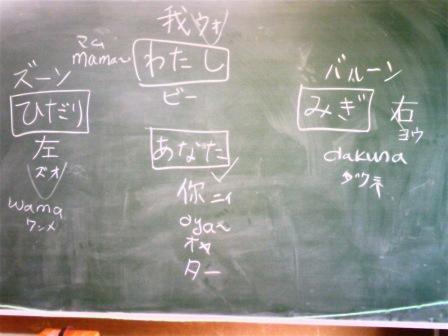 我 ウォ
マム
mama~
わたし
ビー
ズーン
ひだり
左
ズオ
wama
ワンメ
あなた
你 ニィ
oya~
オヤ
ター
バルーン
みぎ 右
ヨウ
dakuna
ダクネ